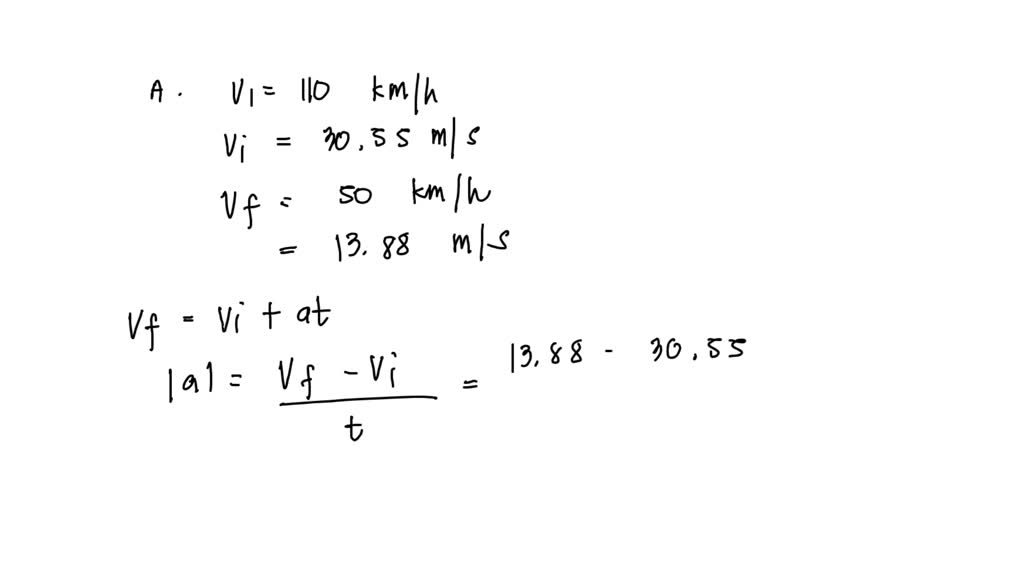 A. V1 = 110 km/h
Vi = 30.55 m/s
Vf = 50 km/h
= 13.88 m/s
Vf = Vi + at
|a| = Vf - Vi / t = 13.88 - 30.55